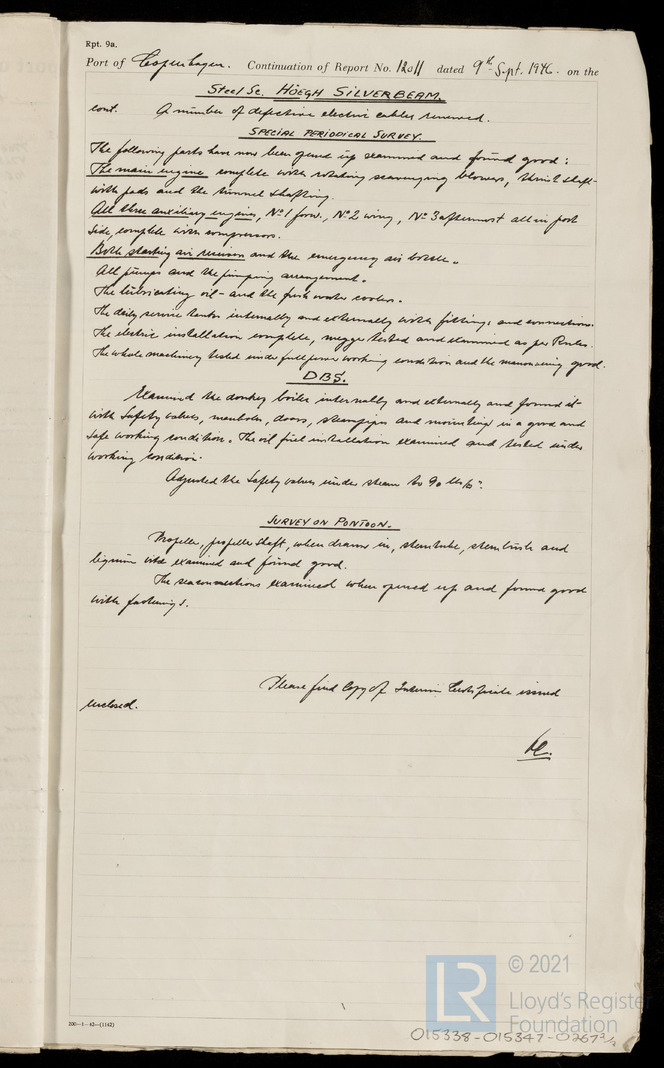 Rpt. 9a.
Port of Copenhagen. Continuation of Report No. 12011 dated 9th Sept. 1946. on the
Steel Sc. HÖEGH SILVERBEAM.
cont. A number of defective electric cables renewed.
SPECIAL PERIODICAL SURVEY.
The following parts have now been opened up examined and found good:
The main engine complete with rotating scavenging blowers, thrust shaft
with pads and the tunnel shafting.
All three auxiliary engines, No 1 forw., No 2 wing, No 3 aftermost all in port
side, complete with compressors.
Both starting air receivers and the emergency air bottle.
All pumps and the pumping arrangement.
The lubricating oil- and the fresh water coolers.
The daily service tanks internally and externally with fittings and connections.
The electric installation complete, megger tested and examined as per Rules.
The whole machinery tested under full power working condition and the manoeuvring good.
DBS.
Examined the donkey boiler internally and externally and found it
with safety valves, manholes, doors, steampipes and mountings in a good and
safe working condition. The oil fuel installation examined and tested under
working condition.
Adjusted the safety valves under steam to 90 lbs/□".
SURVEY ON PONTOON.
Propeller, propeller shaft, when drawn in, sterntube, sternbush and
lignum vitæ examined and found good.
The seaconnections examined when opened up and found good
with fastenings.
Please find Copy of Interim Certificate issued
enclosed.
200—1-43—(1142)
LR
© 2021
Lloyd's Register
Foundation
015338-015347-0267 2/2